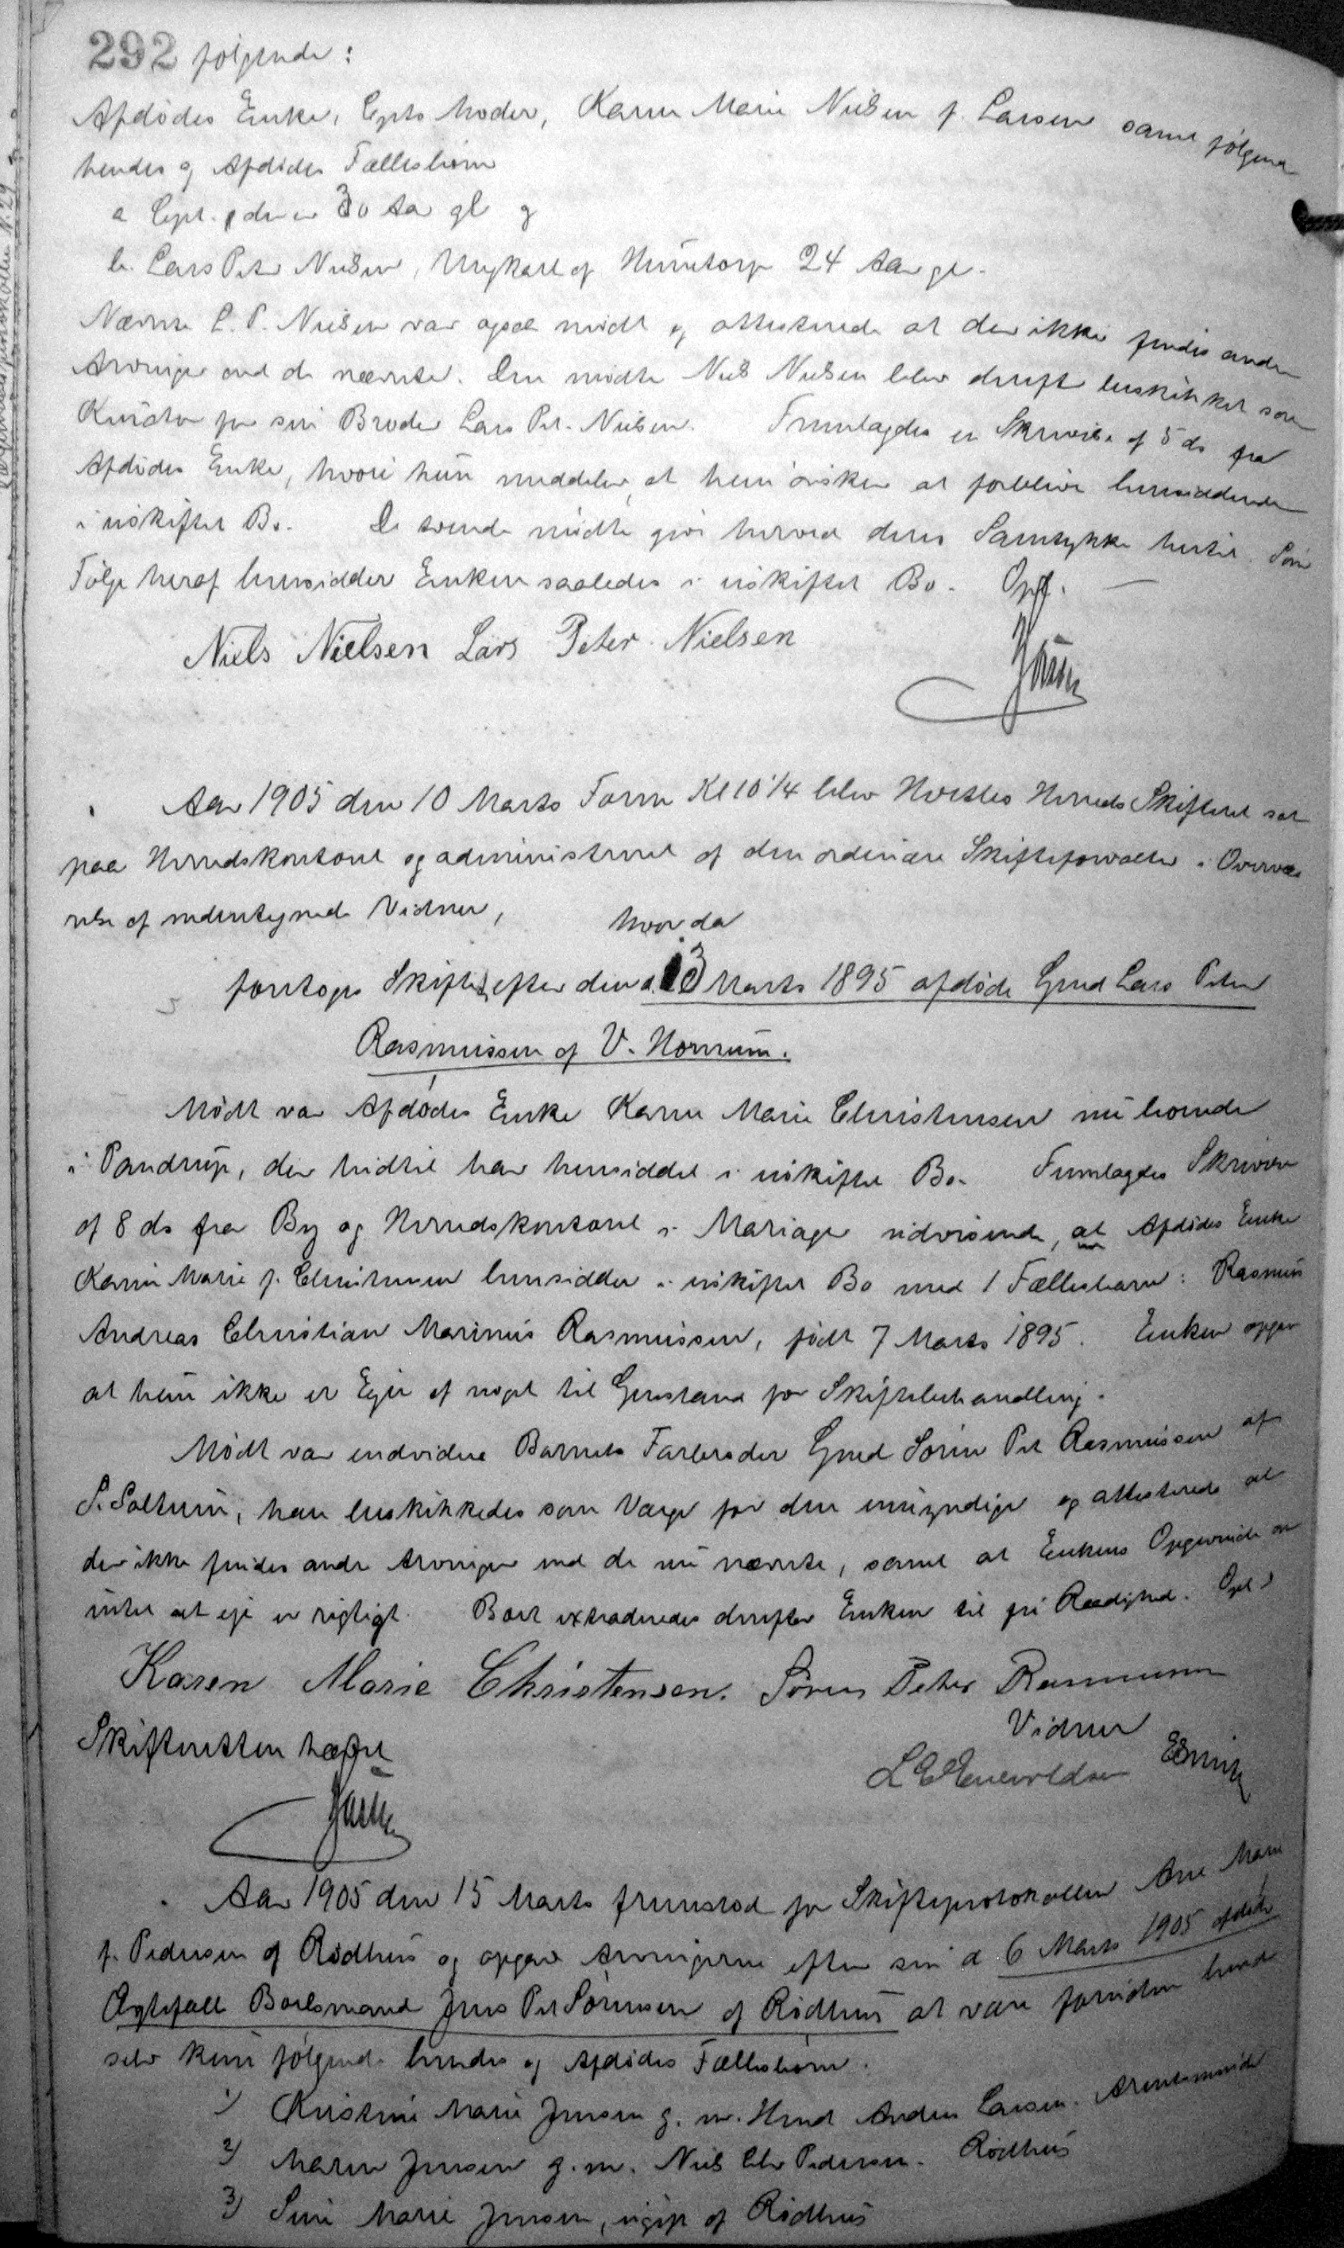 292 følgende:
Afdødes Enke, Cpts Moder, Karen Marie Nielsen f. Larsen samt følgende
hendes og Afdødes Fællesbørn
a Cpt. der er 30 Aar gl og
b. Lars Peter Nielsen, Ungkarl af Hunetorp 24 Aar gl.
Nævnte L. P. Nielsen var også mødt og attesterede at der ikke findes andre
Arvinger end de nævnte. Den mødte Niels Nielsen blev derefter beskikket som
Kurator for sin Broder Lars Pet. Nielsen. Fremlagdes en Skrivelse af 5 ds fra
Afdødes Enke, hvori hun meddeler, at hun ønsker at forblive hensiddende
i uskiftet Bo. De tvende mødte giver herved deres Samtykke hertil. Som
Følge heraf hensidder Enken saaledes i uskiftet Bo. Opl.
Niels Nielsen Lars Peter Nielsen
Aar 1905 den 10 Marts Form Kl 10 1/4 blev Hvetbo Herreds Skifteret sat
paa Herredskontoret og administreret af den ordinære Skifteforvalter i Overvæ
relse af undertegnede Vidner,
hvor da
foretoges Skiftet efter den 13 Marts 1895 afdøde Gmd Lars Peter
Rasmussen af V. Hornum.
Mødt var Afdødes Enke Karen Marie Christensen nu boende
i Pandrup, der hidtil har hensiddet i uskiftet Bo. Fremlagdes Skrivelse
af 8 ds fra By og Herredskontoret i Mariager udvisende, at Afdødes Enke
Karen Marie f. Christensen hensidder i uskiftet Bo med 1 Fællesbarn: Rasmus
Andreas Christian Marinus Rasmussen, født 7 Marts 1895. Enken opgav
at hun ikke er Ejer af noget til Genstand for Skiftebehandling.
Mødt var endvidere Barnets Farbroder Gmd Søren Pet Rasmussen af
S. Saltum, han beskikkedes som Værge for den umyndige og attesterede at
der ikke findes andre Arvinger end de nu nævnte, samt at Enkens Opgivende om
intet at eje er rigtigt. Boet extraderedes derefter Enken til fri Raadighed. Opl.
Karen Marie Christensen. Søren Peter Rasmussen
Vidner
Skifteretten hævet
L E Enevoldsen
Aar 1905 den 15 Marts fremstod for Skifteprotokollen Ane Marie
f. Pedersen af Rødhus og opgav Arvingerne efter sin d 6 Marts 1905 afdøde
Ægtefælle Boelsmand Jens Pet Sørensen af Rødhus at være foruden hende
selv kun følgende hendes og Afdødes Fællesbørn.
1) Kristine Marie Jensen g. m. Hmd Anders Larsen. Arentsminde
2) Maren Jensen g. m. Niels Chr Pedersen. Rødhus
3) Sine Marie Jensen, ugift af Rødhus